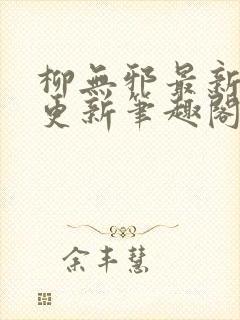 柳無邪最新
更新筆趣閣
余丰慧